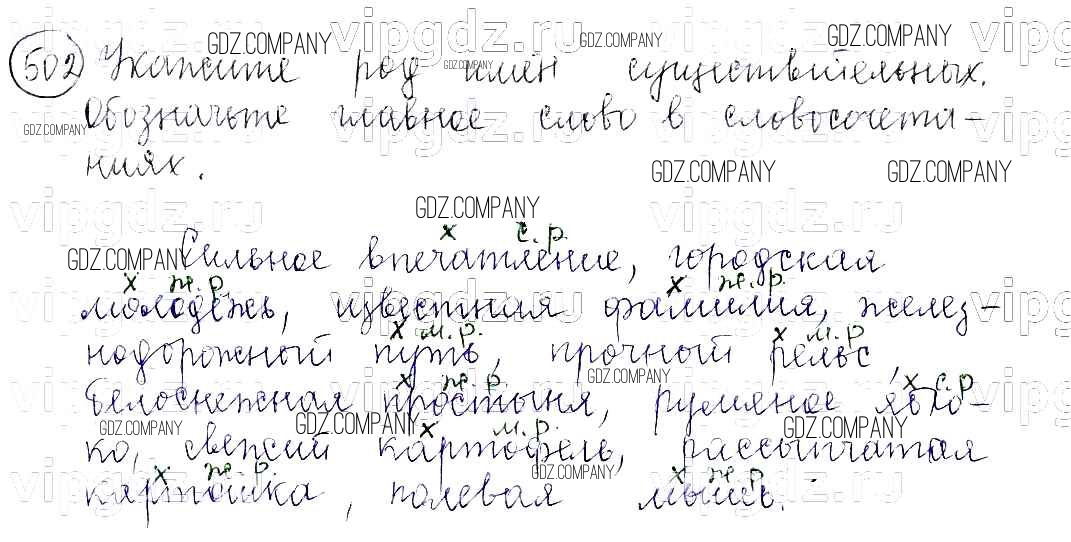 502 Укажите род имен существительных.
Обозначьте главное слово в словосочета-
ниях.
х с.р.
Сильное впечатление, городская
х ж.р. х ж.р.
молодёжь, известная фамилия, желез-
х м.р. х м.р.
нодорожный путь, прочный рельс,
х ж.р. х с.р.
белоснежная простыня, румяное ябло-
х м.р.
ко, свежий картофель, рассыпчатая
х ж.р. х ж.р.
картошка, полевая мышь.
GDZ.COMPANY
vipgdz.ru